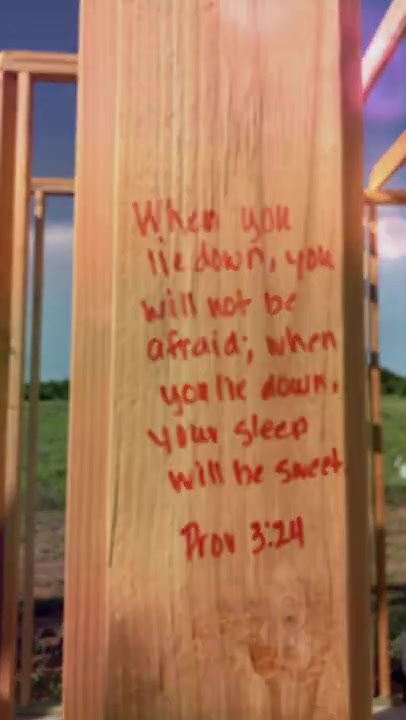 When you
lie down, you
will not be
afraid; when
you lie down,
your sleep
will be sweet
Prov 3:24